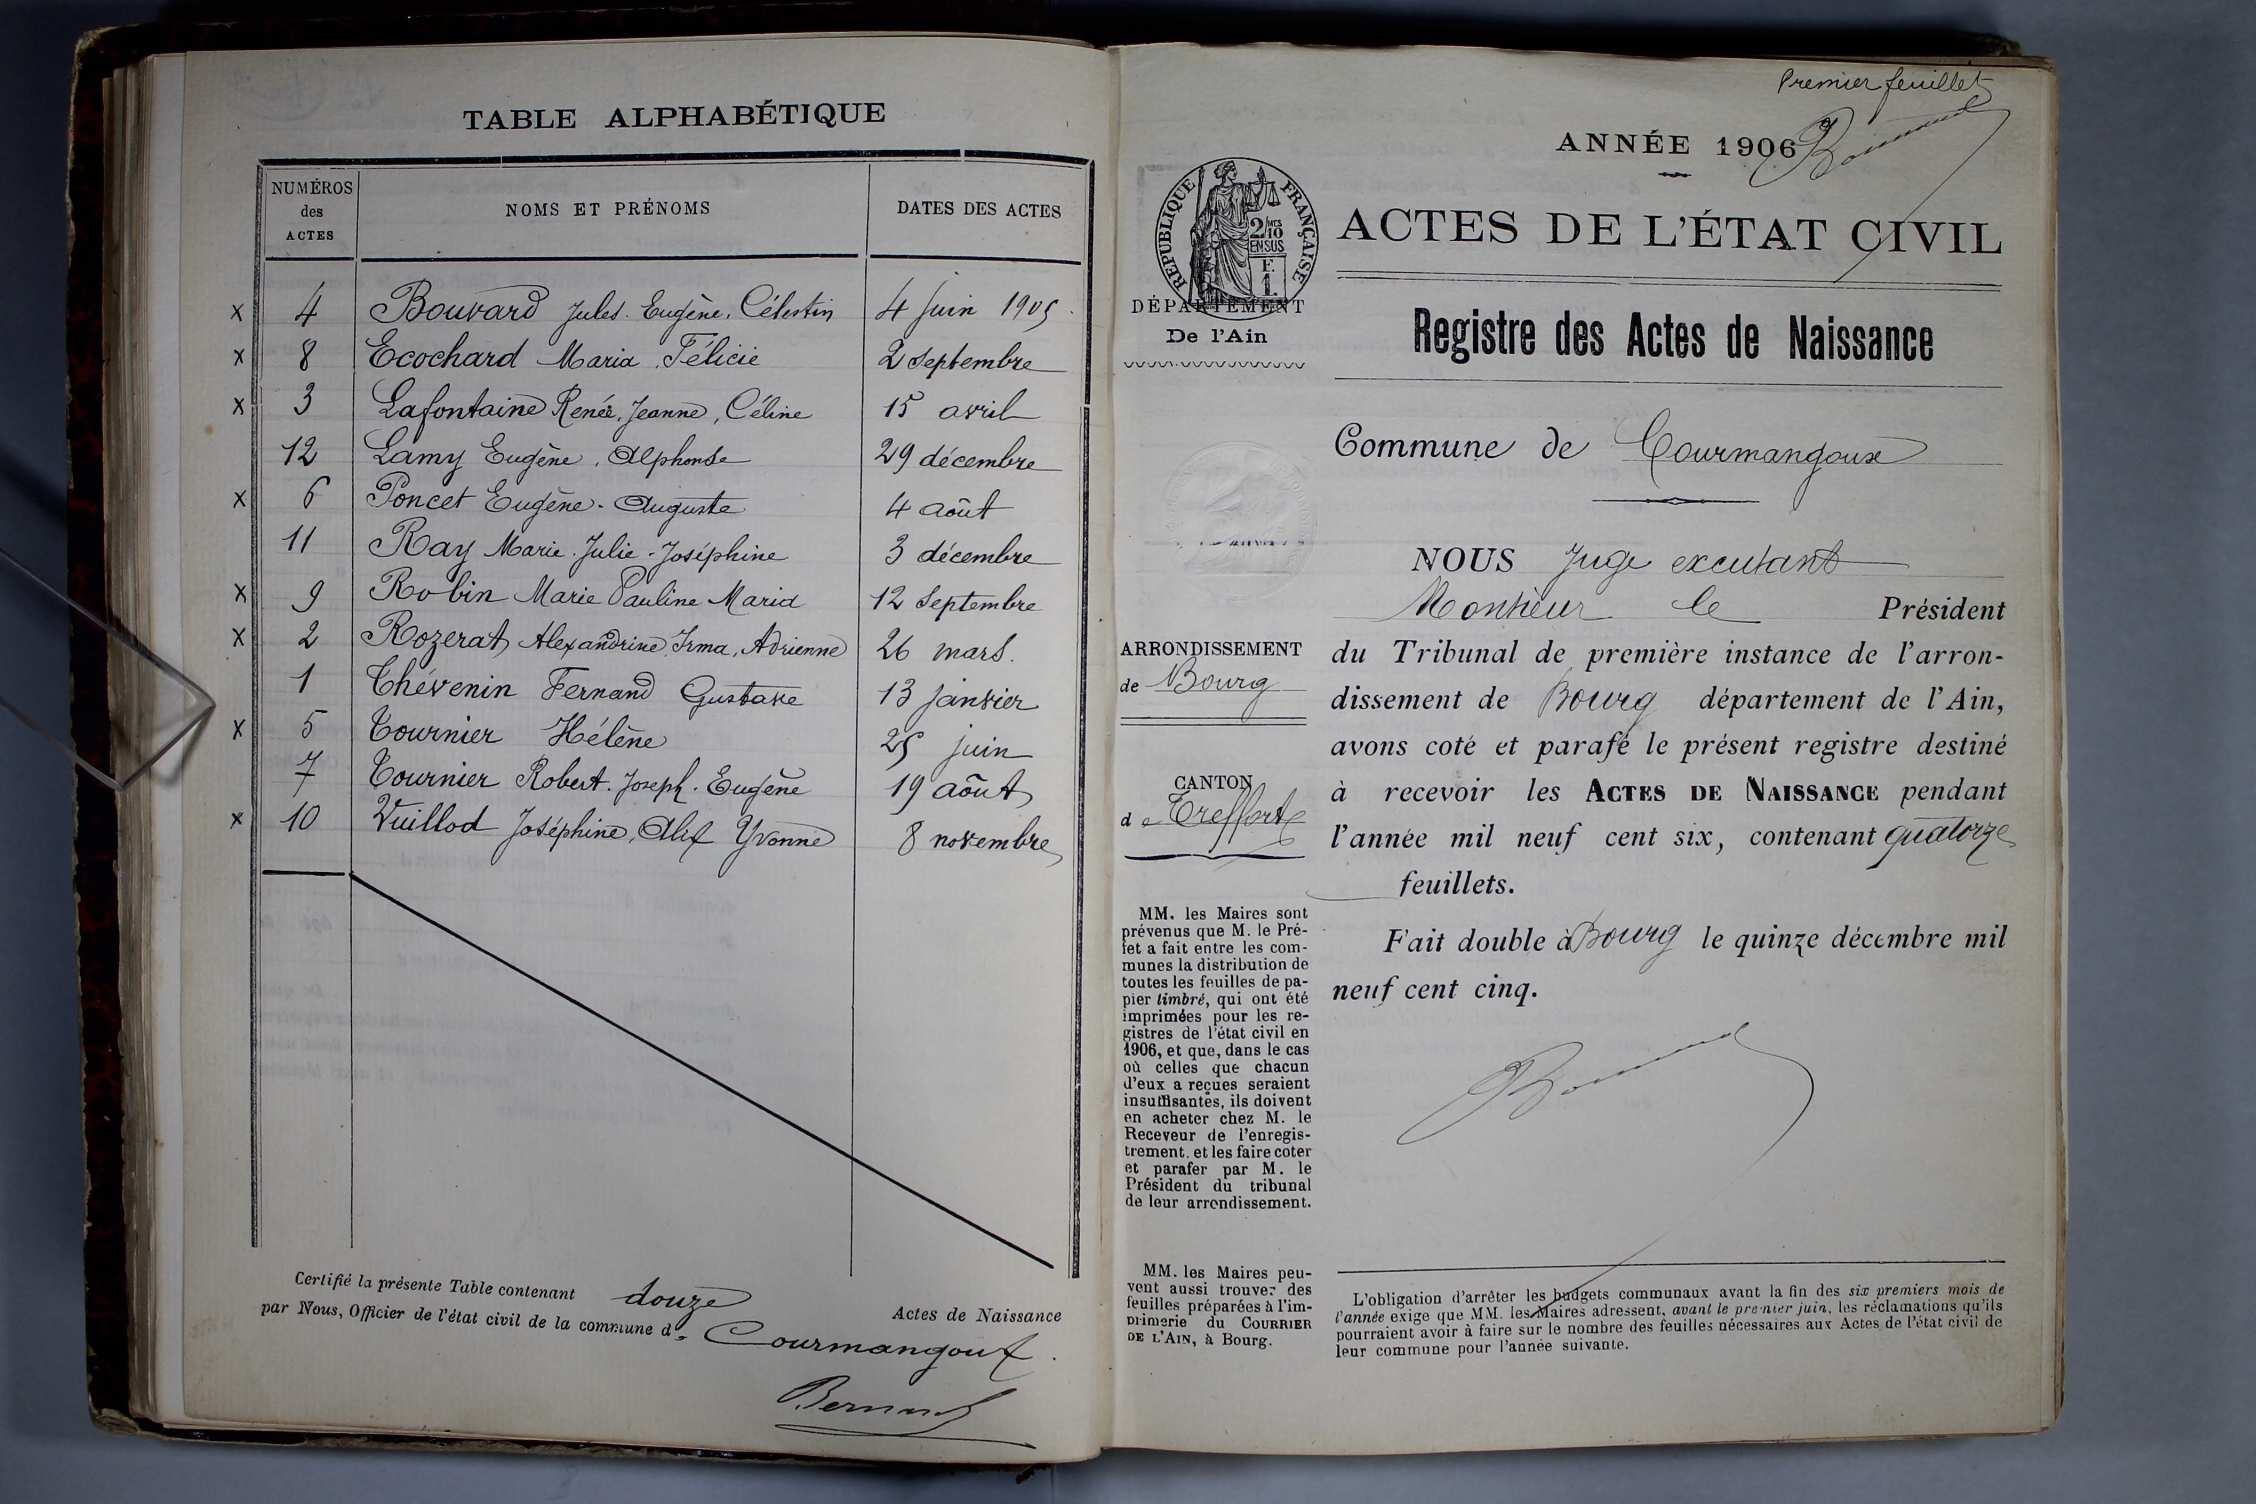 TABLE ALPHABÉTIQUE
NUMÉROS des ACTES NOMS ET PRÉNOMS DATES DES ACTES
x 4 Bouvard Jules. Eugène, Célestin 4 Juin 1905.
x 8 Ecochard Maria, Félicie 2 septembre
x 3 Lafontaine Renée, Jeanne, Céline 15 avril
12 Lamy Eugène, Alphonse 29 décembre
x 6 Poncet Eugène. Auguste 4 août
11 Ray Marie. Julie. Joséphine 3 décembre
x 9 Robin Marie Pauline Maria 12 Septembre
x 2 Rozerat Alexandrine, Irma, Adrienne 26 mars.
1 Thévenin Fernand Gustave 13 janvier
x 5 Tournier Hélène 25 juin
7 Tournier Robert. Joseph. Eugène 19 août
x 10 Vuillod Joséphine, Alix Yvonne 8 novembre
Certifié la présente Table contenant douze Actes de Naissance
par Nous, Officier de l'état civil de la commune de Courmangoux.
Bernard
Premier feuillet
ANNÉE 1906
ACTES DE L'ÉTAT CIVIL
RÉPUBLIQUE FRANÇAISE
2/10
EN SUS
F.
1
DÉPARTEMENT
De l'Ain
Registre des Actes de Naissance
Commune de Courmangoux
NOUS Juge excutant
Monsieur le Président
du Tribunal de première instance de l'arron-
dissement de Bourg département de l'Ain,
avons coté et parafé le présent registre destiné
à recevoir les ACTES DE NAISSANCE pendant
l'année mil neuf cent six, contenant quatorze
feuillets.
Fait double à Bourg le quinze décembre mil
neuf cent cinq.
ARRONDISSEMENT
de Bourg
CANTON
de Treffort
MM. les Maires sont
prévenus que M. le Pré-
fet a fait entre les com-
munes la distribution de
toutes les feuilles de pa-
pier timbré, qui ont été
imprimées pour les re-
gistres de l'état civil en
1906, et que, dans le cas
où celles que chacun
d'eux a reçues seraient
insuffisantes, ils doivent
en acheter chez M. le
Receveur de l'enregis-
trement. et les faire coter
et parafer par M. le
Président du tribunal
de leur arrondissement.
MM. les Maires peu-
vent aussi trouver des
feuilles préparées à l'im-
primerie du COURRIER
DE L'AIN, à Bourg.
L'obligation d'arrêter les budgets communaux avant la fin des six premiers mois de
l'année exige que MM. les Maires adressent, avant le premier juin, les réclamations qu'ils
pourraient avoir à faire sur le nombre des feuilles nécessaires aux Actes de l'état civil de
leur commune pour l'année suivante.